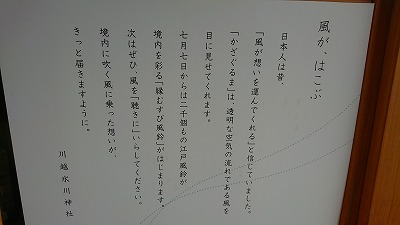 風が、はこぶ
日本人は昔、
「風が想いを運んでくれる」と信じていました。
「かざぐるま」は、透明な空気の流れである風を
目に見せてくれます。
七月七日からは二千個もの江戸風鈴が
境内を彩る「縁むすび風鈴」がはじまります。
次はぜひ、風を「聴きに」いらしてください。
境内に吹く風に乗った想いが、
きっと届きますように。
川越氷川神社